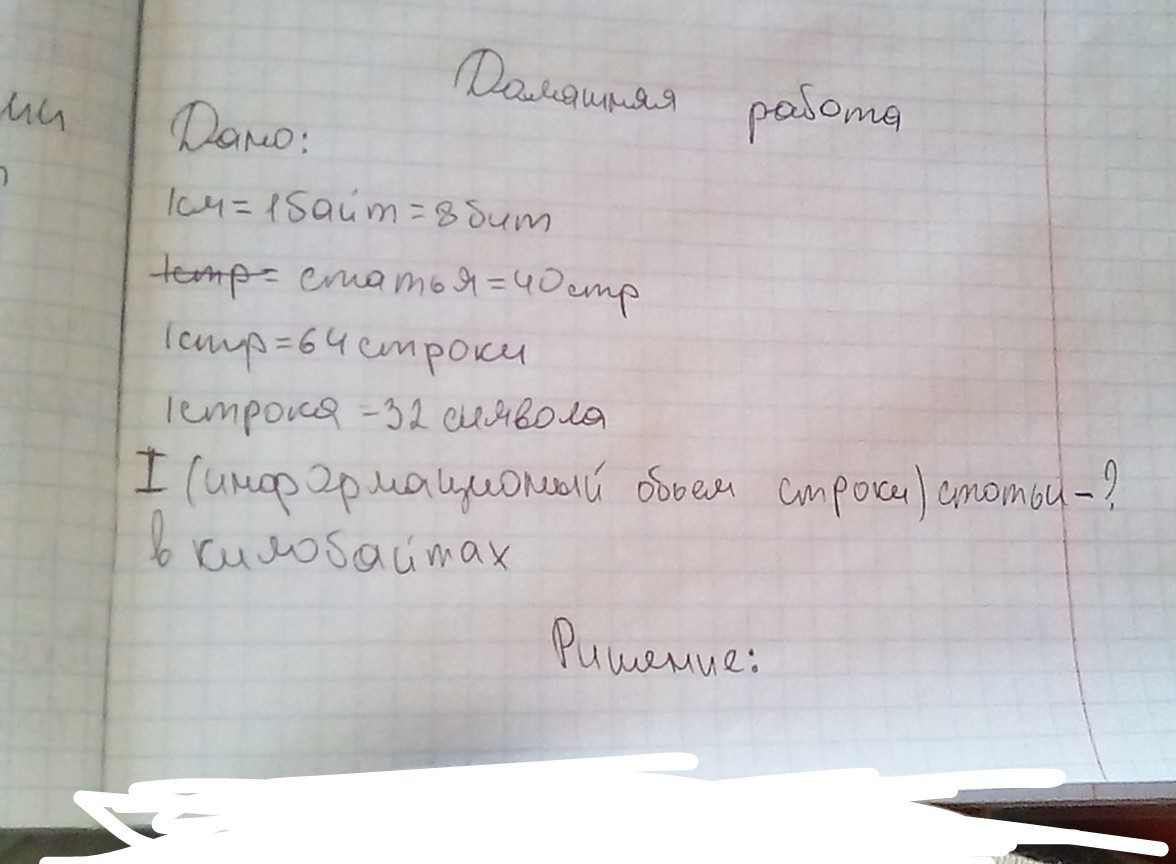 ми
Домашняя работа
Дано:
1см=1байт=8бит
1стр= статья=40стр
1стр=64строки
1строка -32 символа
I (информационый обьем строки) статьи-?
в килобайтах
Ришение: